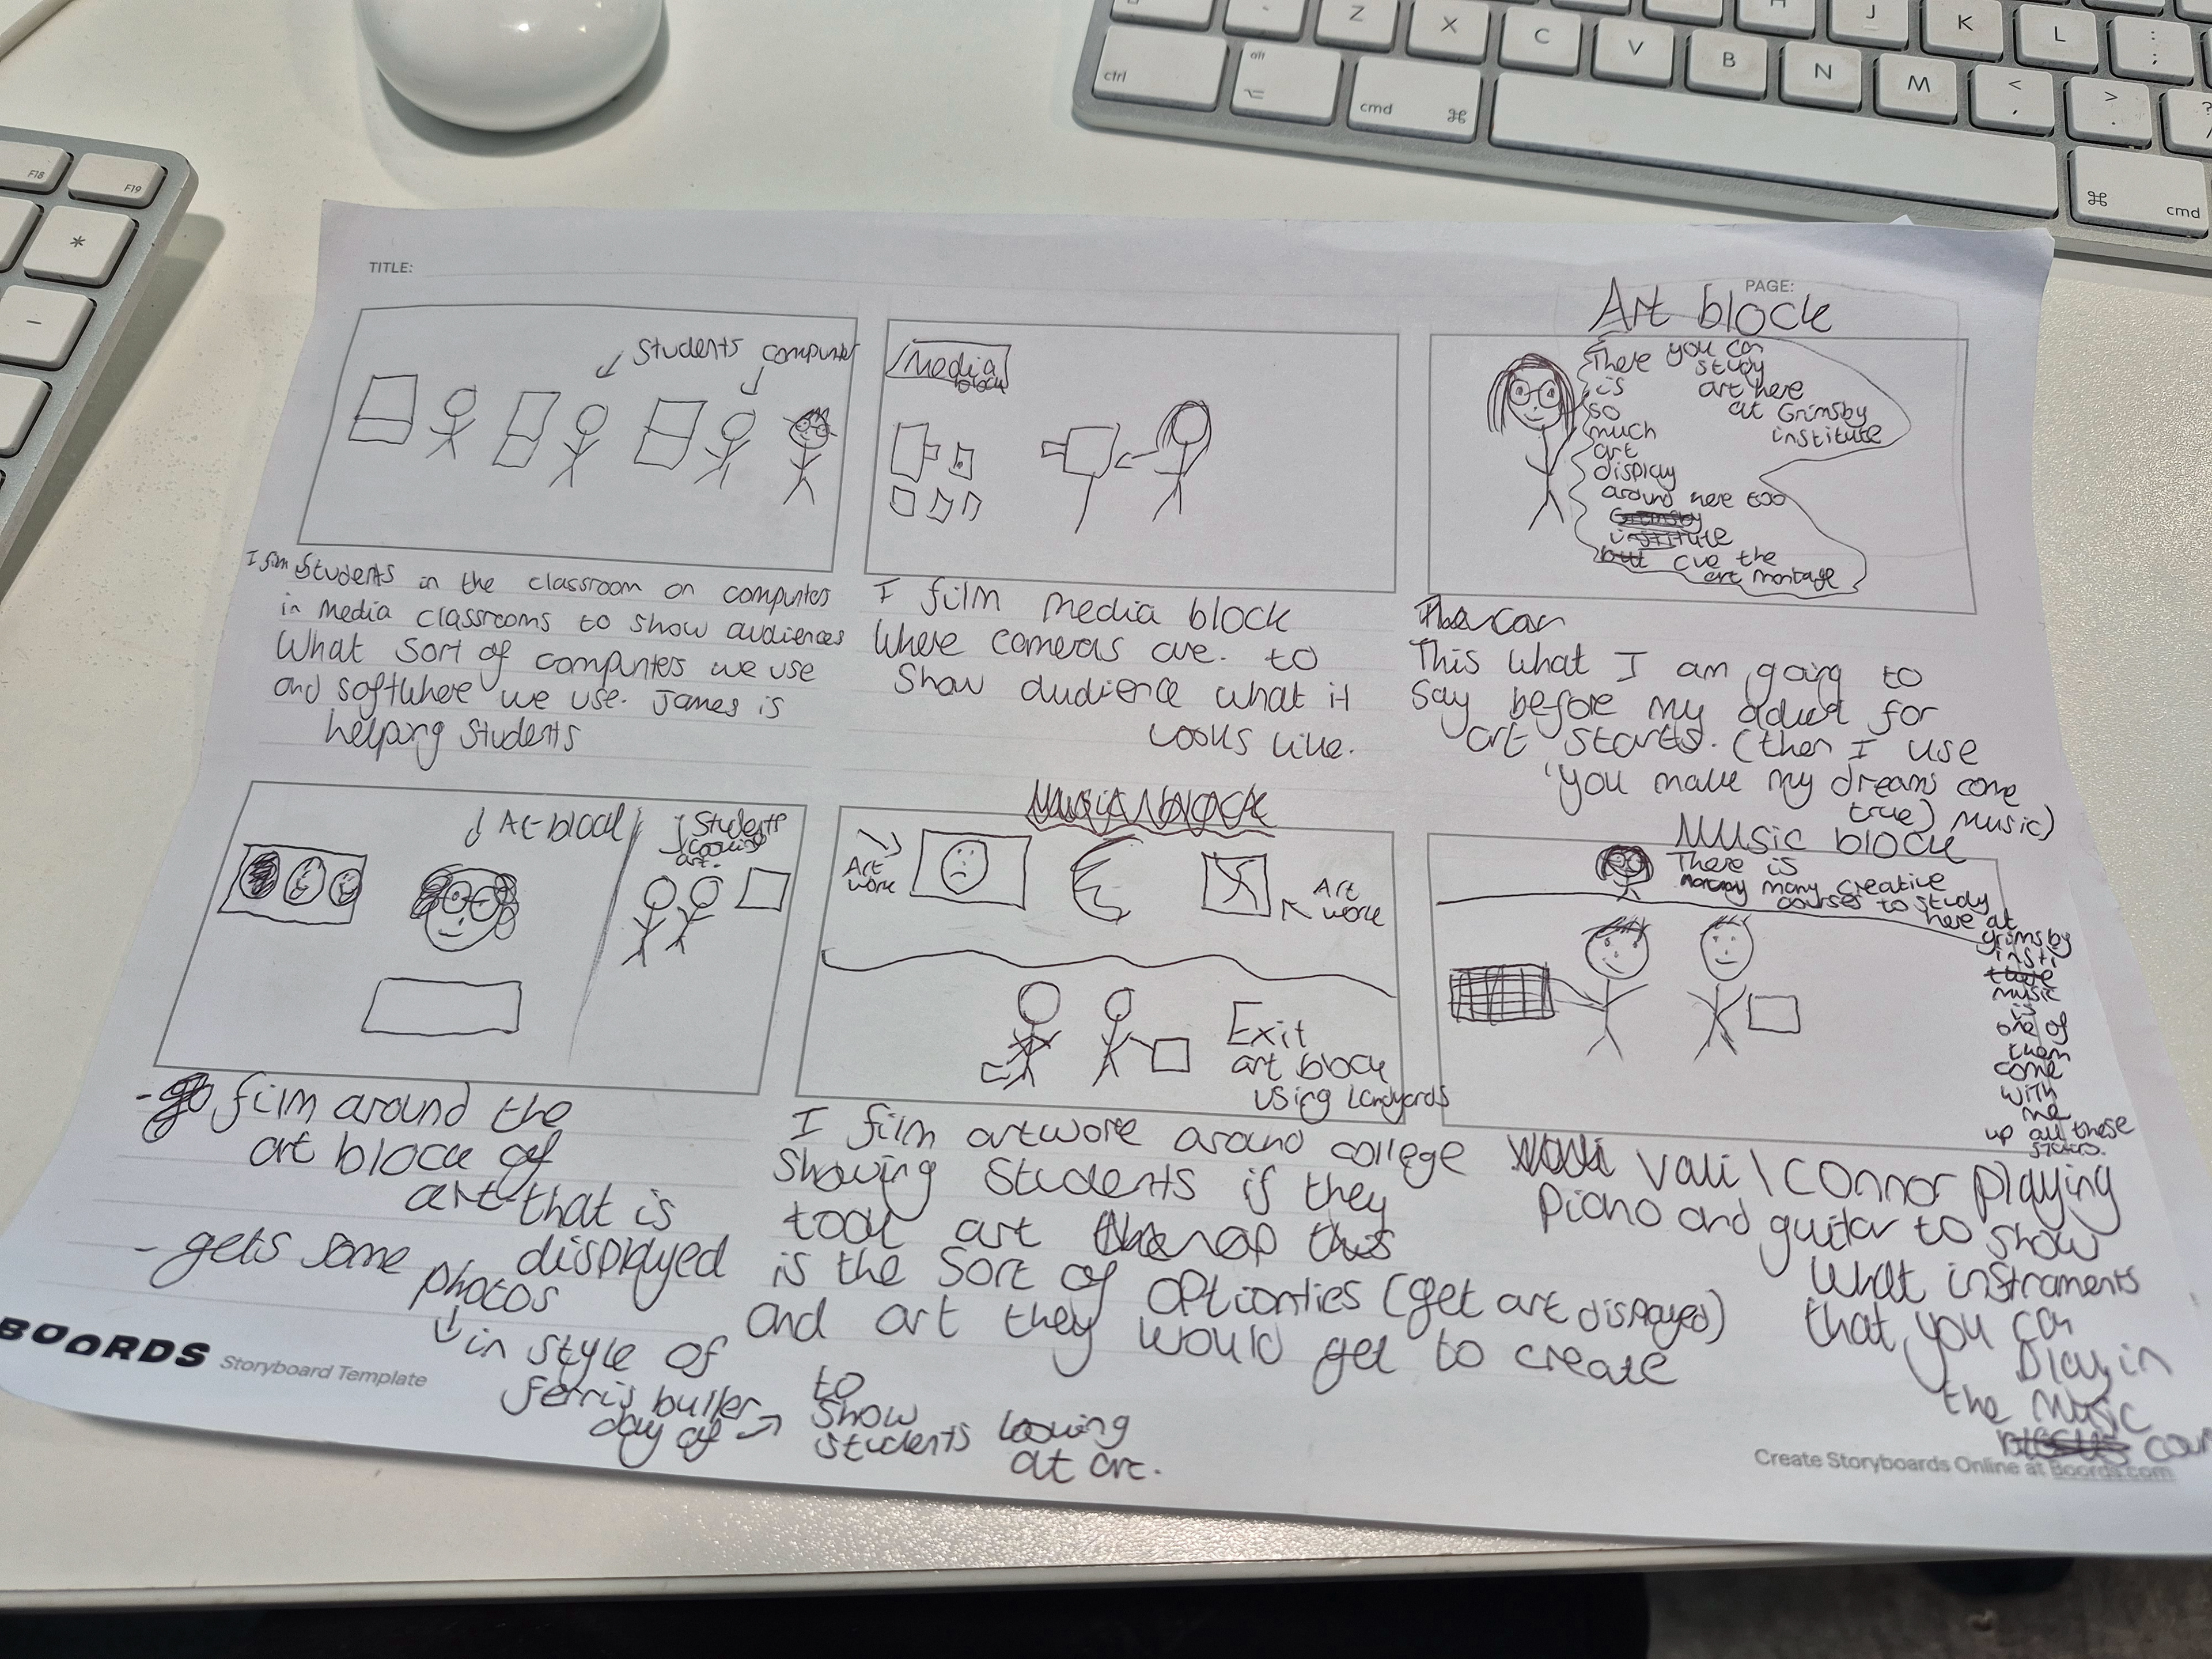 TITLE:
PAGE:
Students computer
I film Students in the classroom on computers
in Media classrooms to show audiences
What sort of computers we use
and softwhere we use. James is
helping students
Media
block
I film media block
Where cameras are. to
Show audience what it
Looks like.
Art block
There you can
is study
so art here
much at Grimsby
art institute
display
around here too
Grimsby
institute
but cue the
art montage
This what I am going to
Say before my advert for
art starts. (then I use
'you make my dreams come
true) music)
Art block
Students
looking
art.
- go film around the
art block of
art that is
displayed
- gets some
photos
in style of
ferris buller
day of
to
Show
students looking
at art.
Music block
Art
work
Art
work
Exit
art block
using Landyards
I film artwork around college
Showing Students if they
took art this
is the sort of (get art displayed)
and art they would get to create
Music block
There is
many creative
courses to study
here at
grimsby
insti
tute
music
is
one of
them
come
with
me
up all these
stairs.
Vali \ Connor playing
Piano and guitar to show
What instraments
that you can
play in
the music
cour
BOORDS Storyboard Template
Create Storyboards Online at Boords.com
F18
F19
*
-
ctrl
alt
cmd
Z
X
C
V
B
N
M
H
J
K
L
:
;
<
,
>
.
?
cmd